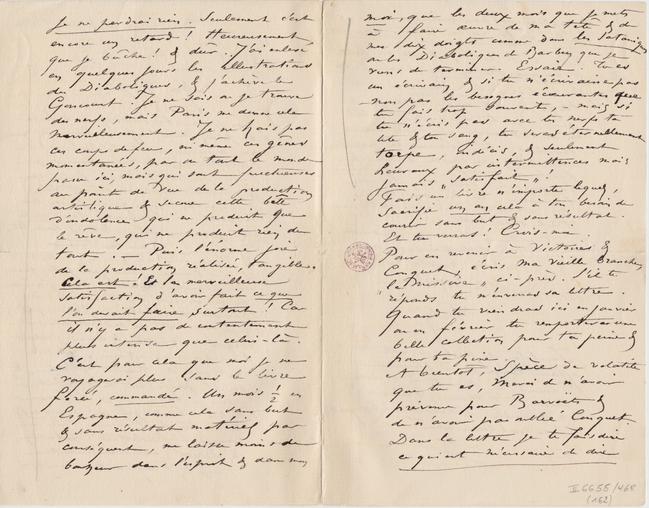 Je ne perdrai rien. Seulement c'est
encore un retard! Heureusement
que je bûche! & dur. J'ai enlevé
en quelques jours les illustrations
des Diaboliques, & j'achève le
Goncourt. Je ne sais où je trouve
du nerfs, mais Paris me donne cela
merveilleusement. Je ne hais pas
ces coups de feu, ni même ces gênes
momentanées, par où tout le monde
passe ici mais qui sont précieuses
au point de vue de la production
artistique & secoue cette bête
d'indolence qui ne produit que
le rêve, qui ne produit rien du
tout. — Puis l'énorme joie
de la production réalisée, tangible.
Cela est! Et la merveilleuse
satisfaction d'avoir fait ce que
l'on devait faire surtout! Car
il n'y a pas de contentement
plus intense que celui-là.
C'est pour cela que moi je ne
voyagerai plus sans le livre
forcé, commandé. Un mois ½ en
Espagne, comme cela sans but
& sans résultat matériel par
conséquent, me laisse moins de
bonheur dans l'esprit & dans mon
moi, que les deux mois que je mets
à faire œuvre de ma tête & de
mes dix doigts comme dans les Sataniques
ou les Diaboliques de Barbey que je
viens de terminer. Essaie. Tu es
un écrivain & si tu n'écris pas
— non pas les besognes écœurantes que
tu fais trop souvent, — mais si
tu n'écris pas avec tes nerfs ta
tête & ton sang, tu seras éternellement
torpe, indécis, & seulement
heureux par intermittences mais
jamais „satisfait"!
Fais un livre n'importe lequel,
sacrifie un an cela à ton besoin de
courir sans but & sans résultat.
Et tu verras! Crois-moi
Pour en revenir à Victoires &
Conquêtes, écris ma vieille branche,
la missive ci-près. S'il te
réponds tu m'enverras sa lettre.
Quand tu viendras ici en janvier
ou en février tu remporteras une
belle collection pour ta peine &
pour ta peine.
A bientôt, Spèce de volatile
que tu es, Merci de m'avoir
prévenu pour &
de n'avoir pas oublié Conquet.
Dans la lettre je te fais dire
ce qui est nécessaire de dire
II 6655/468
(162)